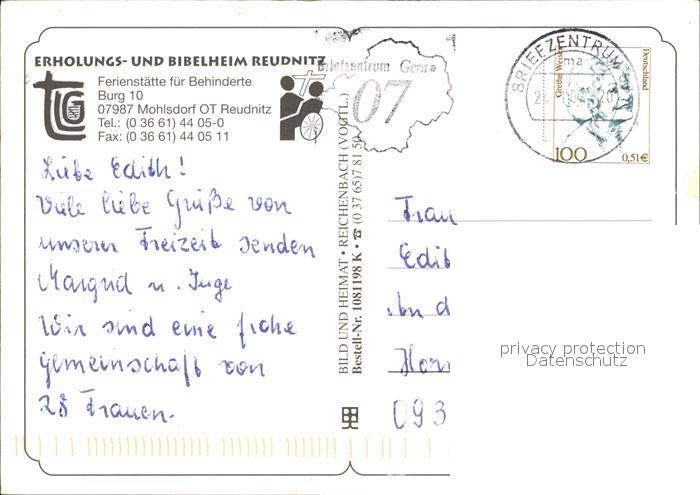 ERHOLUNGS- UND BIBELHEIM REUDNITZ
Ferienstätte für Behinderte
Burg 10
07987 Mohlsdorf OT Reudnitz
Tel.: (0 36 61) 44 05-0
Fax: (0 36 61) 44 05 11
Liebe Edith!
Viele liebe Grüße von
unserer Freizeit senden
Margrid u. Inge
Wir sind eine frohe
Gemeinschaft von
28 Frauen.
BILD UND HEIMAT • REICHENBACH (VOGTL.)
Bestell-Nr. 1081198 K • ☎ (0 37 65) 7 81 50
Briefzentrum Gera
07
BRIEFZENTRUM
Grethe Weiser
Deutschland
100
0,51€
Frau
Edit
An d
Horn
093
privacy protection
Datenschutz